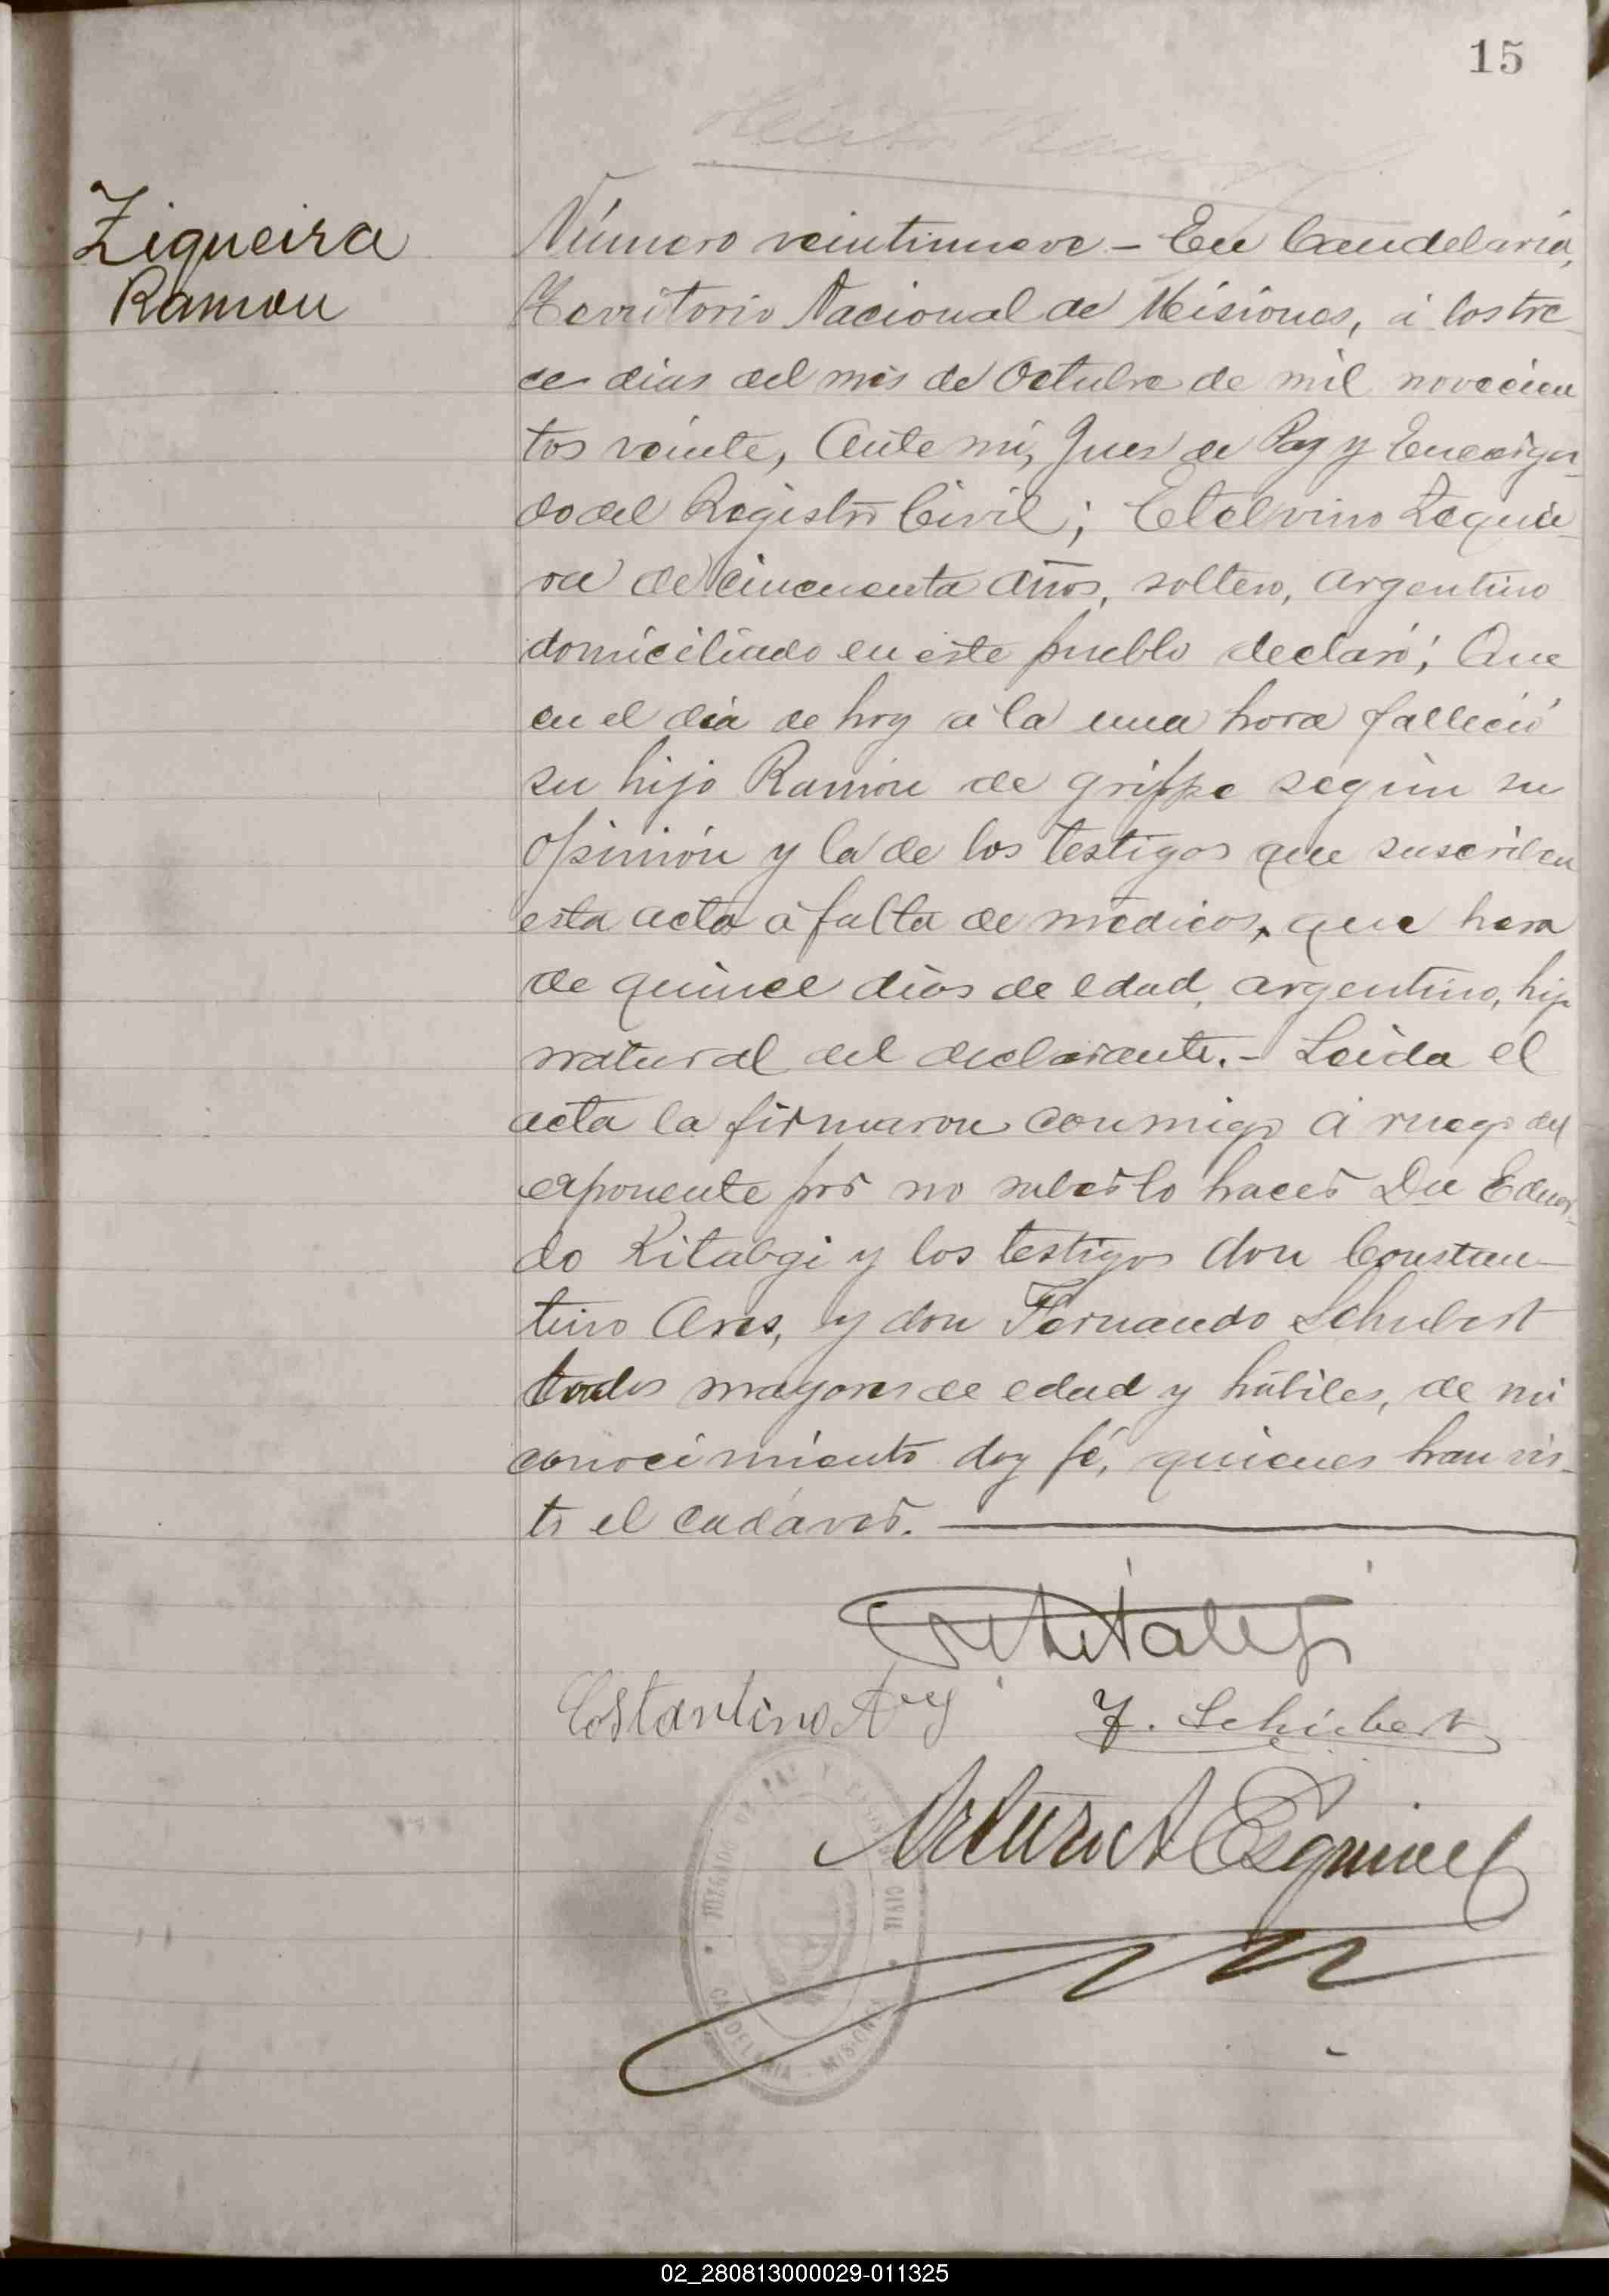 15
Ziqueira
Ramon
Número veintinueve - En Candelaria,
Territorio Nacional de Misiones, á los tre
ce dias del mes de Octubre de mil novecien
tos veinte, Ante mi, Juez de Paz y Encarga-
do del Registro Civil; Etelvino Zequei-
ra de cincuenta años, soltero, argentino
domiciliado en este pueblo declaró; Que
en el dia de hoy a la una hora falleció
su hijo Ramón de grippe según su
opinión y la de los testigos que suscriben
esta acta á falta de médicos, que hera
de quince dias de edad, argentino, hijo
natural del declarante. - Leida el
acta la firmaron conmigo á ruego del
exponente por no saberlo hacer Dn Eduar-
do Kitabgi y los testigos don Constan-
tino Ares, y don Fernando Schubert
todos mayores de edad y hábiles, de mi
conocimiento doy fé, quienes han vis-
to el cadáver.
Kitabgi
Costantino Ares
F. Schubert
Arturo A Esquivel
JUZGADO DE PAZ Y REGISTRO CIVIL
CANDELARIA - MISIONES
02_280813000029-011325